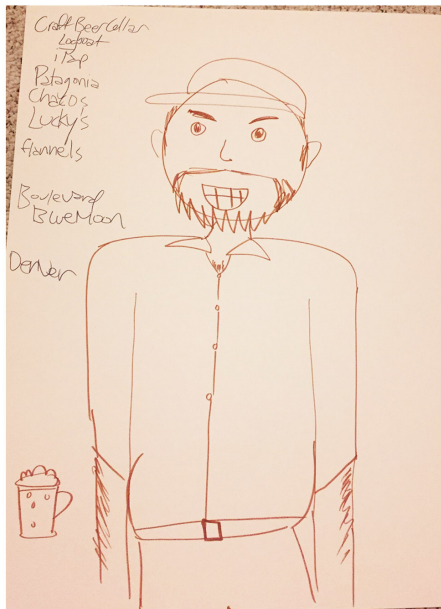 Craft Beer Cellar
Logboat
iTap
Patagonia
Chacos
Lucky's
flannels
Boulevard
Blue Moon
Denver